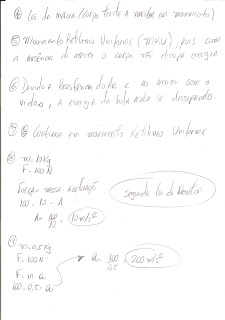 ④ Lei da massa/corpo tende a manter em movimento)
⑤ Movimento Retilíneo Uniforme (MRU), pois com
a ausência de atrito o corpo não dissipa energia
⑥ Devido a Resistência do Ar e ao atrito com o
vidro, a energia da bola acaba se dissipando.
⑦ Continua em movimento Retilíneo Uniforme
⑧
m: 10kg
F: 100N
Força = massa . Aceleração
100 = 10 . A
A = 100/10 = 10m/s²
Segunda Lei de Newton
⑨
m = 0,5kg
F: 100N
F = m . a
100 = 0,5 . a
a = 100/0,5 = 200m/s²